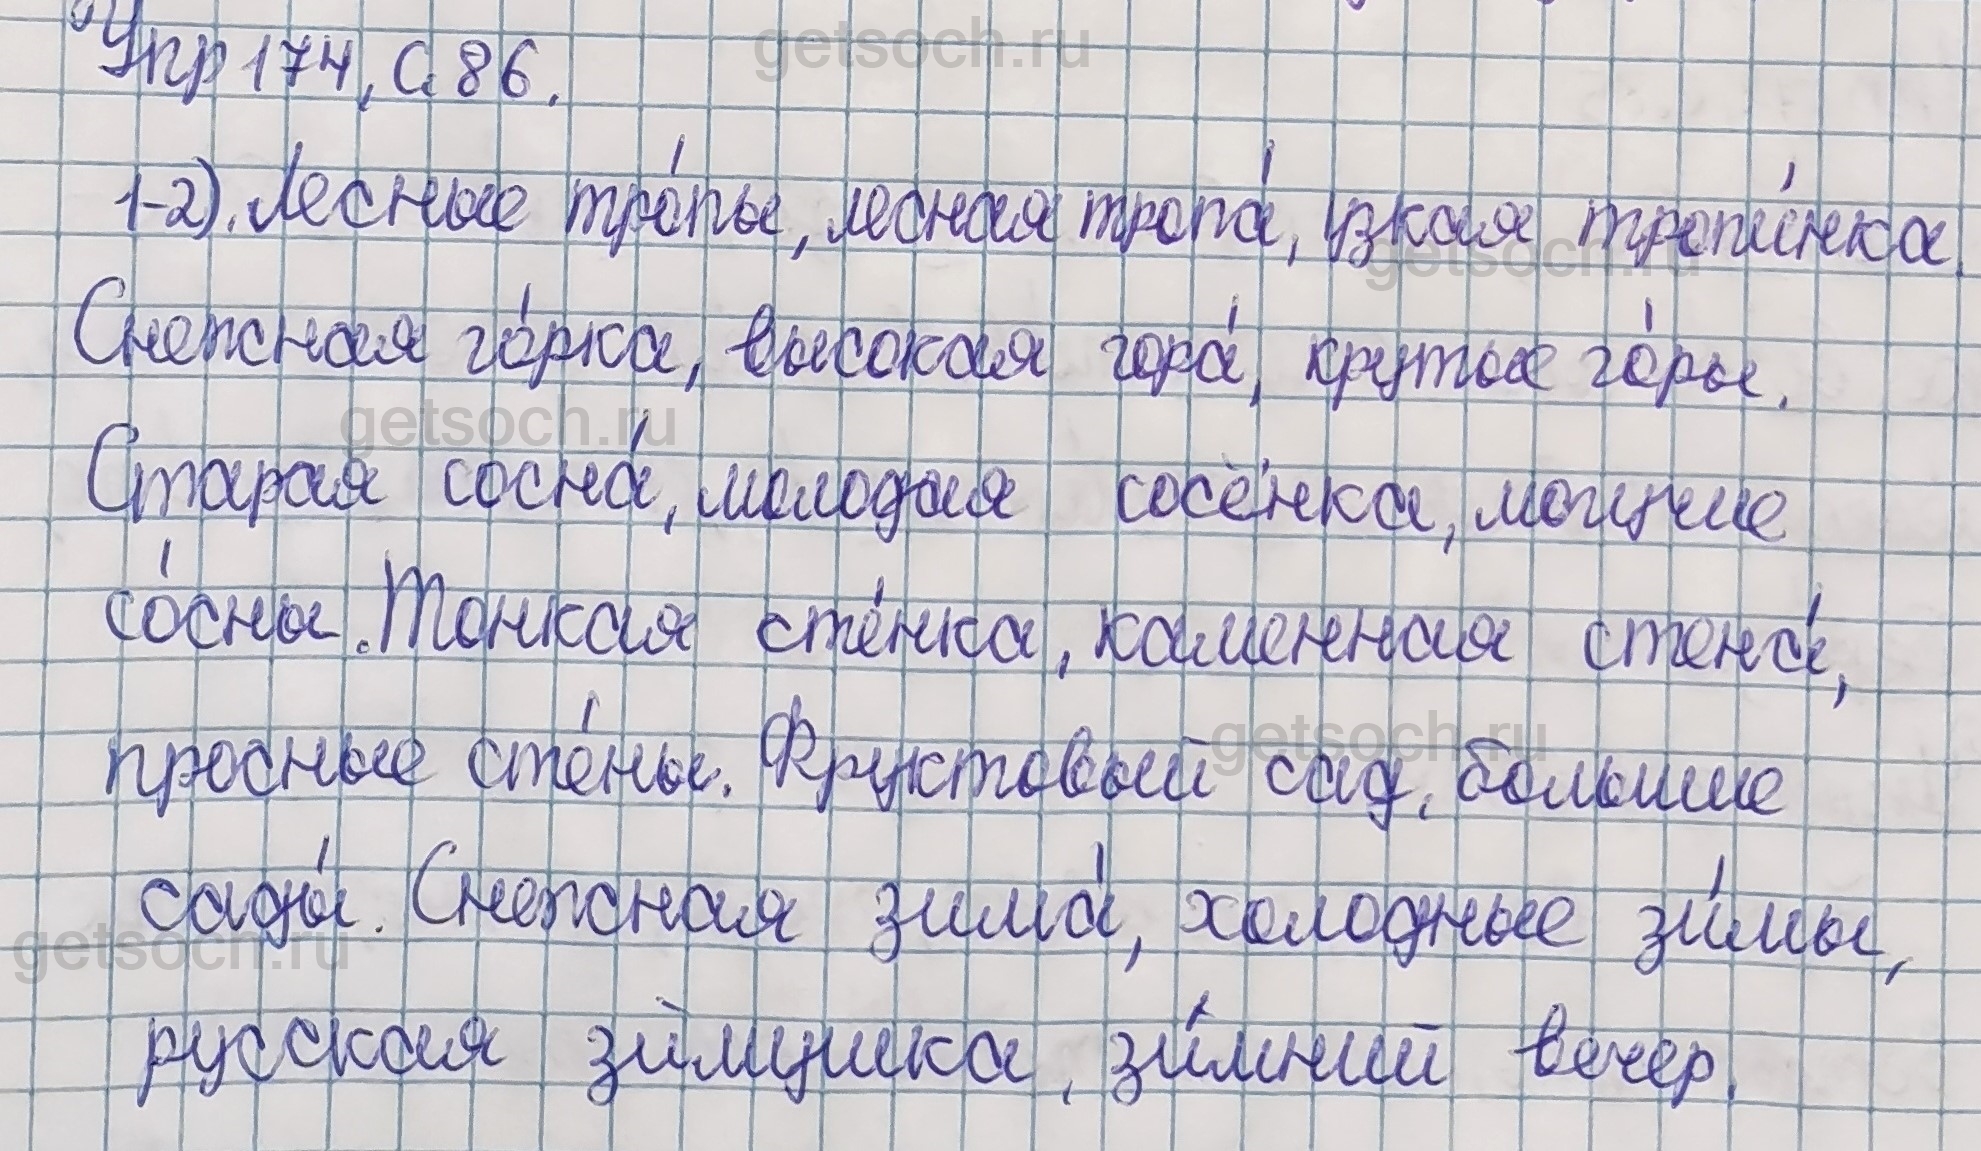 Упр 174, С. 86.
getsoch.ru
1-2). Лесные тро́пы, лесная тропа́, узкая тропи́нка.
getsoch.ru
Снежная го́рка, высокая гора́, крутые го́ры.
getsoch.ru
Старая сосна́, молодая сосёнка, могучие
со́сны. Тонкая сте́нка, каменная стена́,
getsoch.ru
прочные сте́ны. Фруктовый сад, большие
сады́. Снежная зима́, холодные зи́мы,
getsoch.ru
русская зи́мушка, зи́мний вечер.